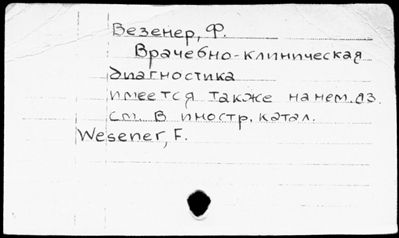 Везенер, Ф.
Врачебно-клиническая
диагностика
имеется также на нем. яз.
см. в иностр. катал.
Wesener, F.